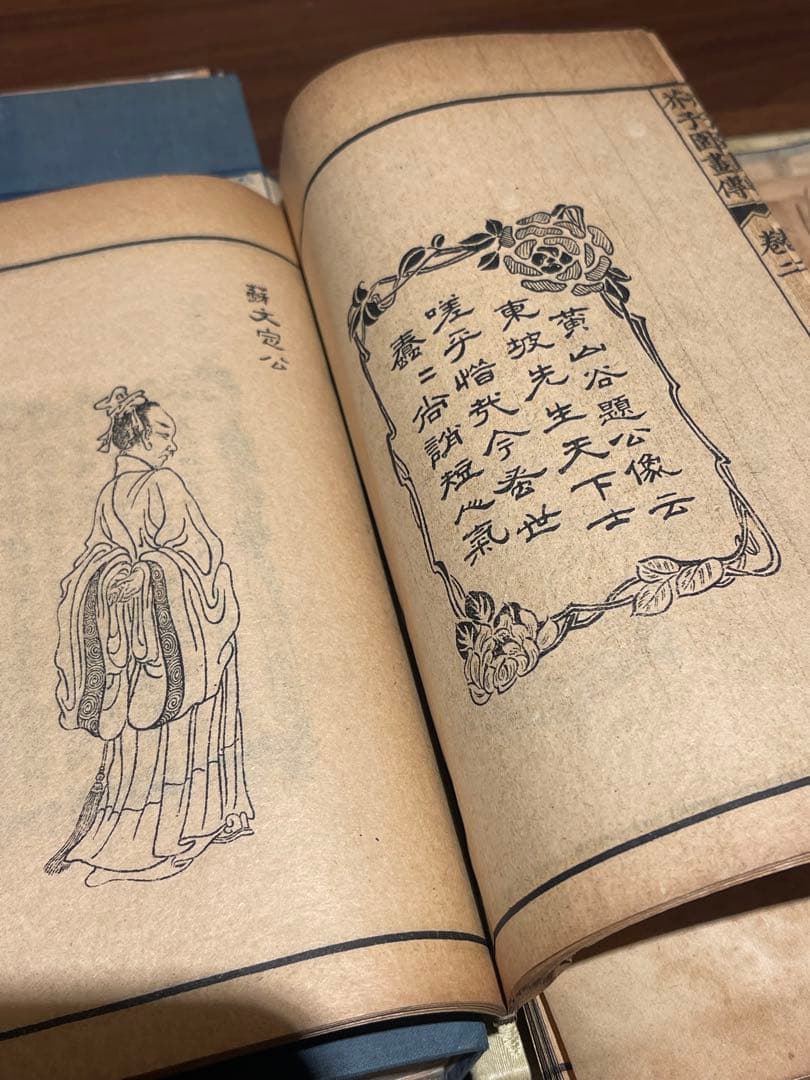 芥子園畫傳
卷二
黃山谷題公像云
東坡先生天下士
嗟乎惜哉今蚤世
蠢二尚誚短心氣
蘇文㝎公